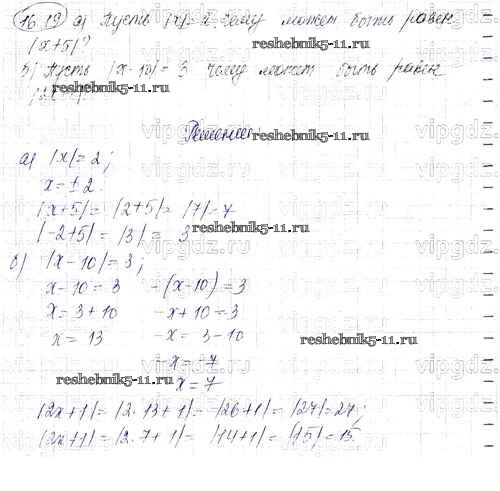 16.19 а) Пусть |x|=2. Чему может быть равен
|x+5|?
б) Пусть |x-10|= 3 чему может быть равен
reshebnik5-11.ru
Решение.
reshebnik5-11.ru
а) |x|=2;
x=±2.
|x+5|= |2+5|= |7|=7
|-2+5|= |3|= 3
reshebnik5-11.ru
б) |x-10|=3;
x-10= 3 -(x-10)=3
x=3+10 -x+10=3
x= 13 -x= 3-10
reshebnik5-11.ru
-x=-7
x=7
reshebnik5-11.ru
|2x+1|= |2·13+1|= |26+1|= |27|=27;
|2x+1|= |2·7+1|= |14+1|= |15|=15.
vipgdz.ru